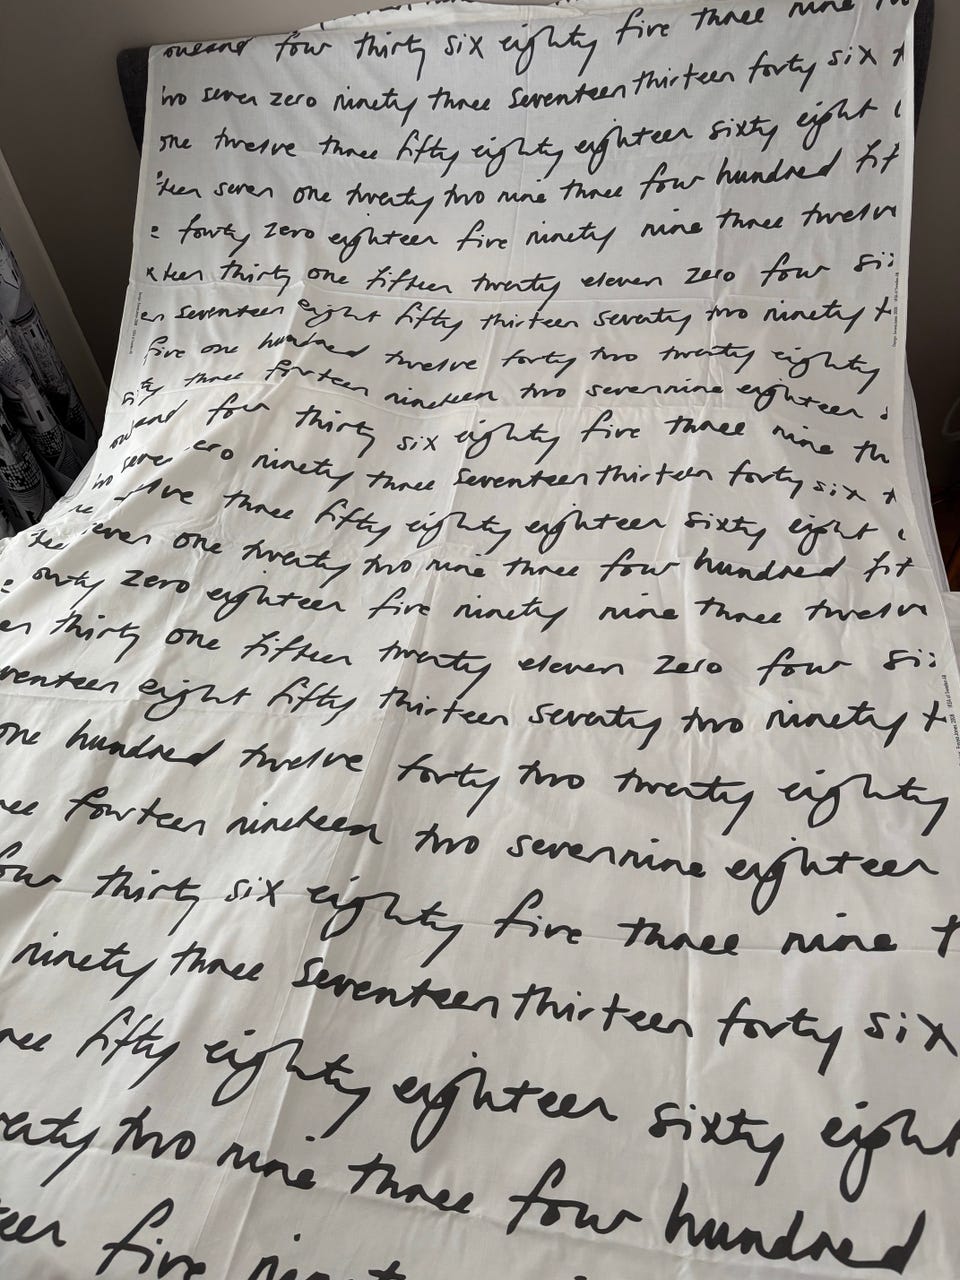 four thirty six eighty five three nine
two seven zero ninety three seventeen thirteen forty six
one twelve three fifty eighty eighteen sixty eight
teen seven one twenty two nine three four hundred fif
e fourty zero eighteen five ninety nine three twelve
teen thirty one fifteen twenty eleven zero four six
en seventeen eight fifty thirteen seventy two ninety t
five one hundred twelve forty two twenty eighty
three fourteen nineteen two seven nine eighteen
four thirty six eighty five three nine th
seven ninety three seventeen thirteen forty six
three fifty eighty eighteen sixty eight
seven one twenty two nine three four hundred fif
zero eighteen five ninety nine three twelve
en thirty one fifteen twenty eleven zero four six
venteen eight fifty thirteen seventy two ninety t
one hundred twelve forty two twenty eighty
ee fourteen nineteen two seven nine eighteen
four thirty six eighty five three nine t
ninety three seventeen thirteen forty six
ee fifty eighty eighteen sixty eight
enty two nine three four hundred
teen five